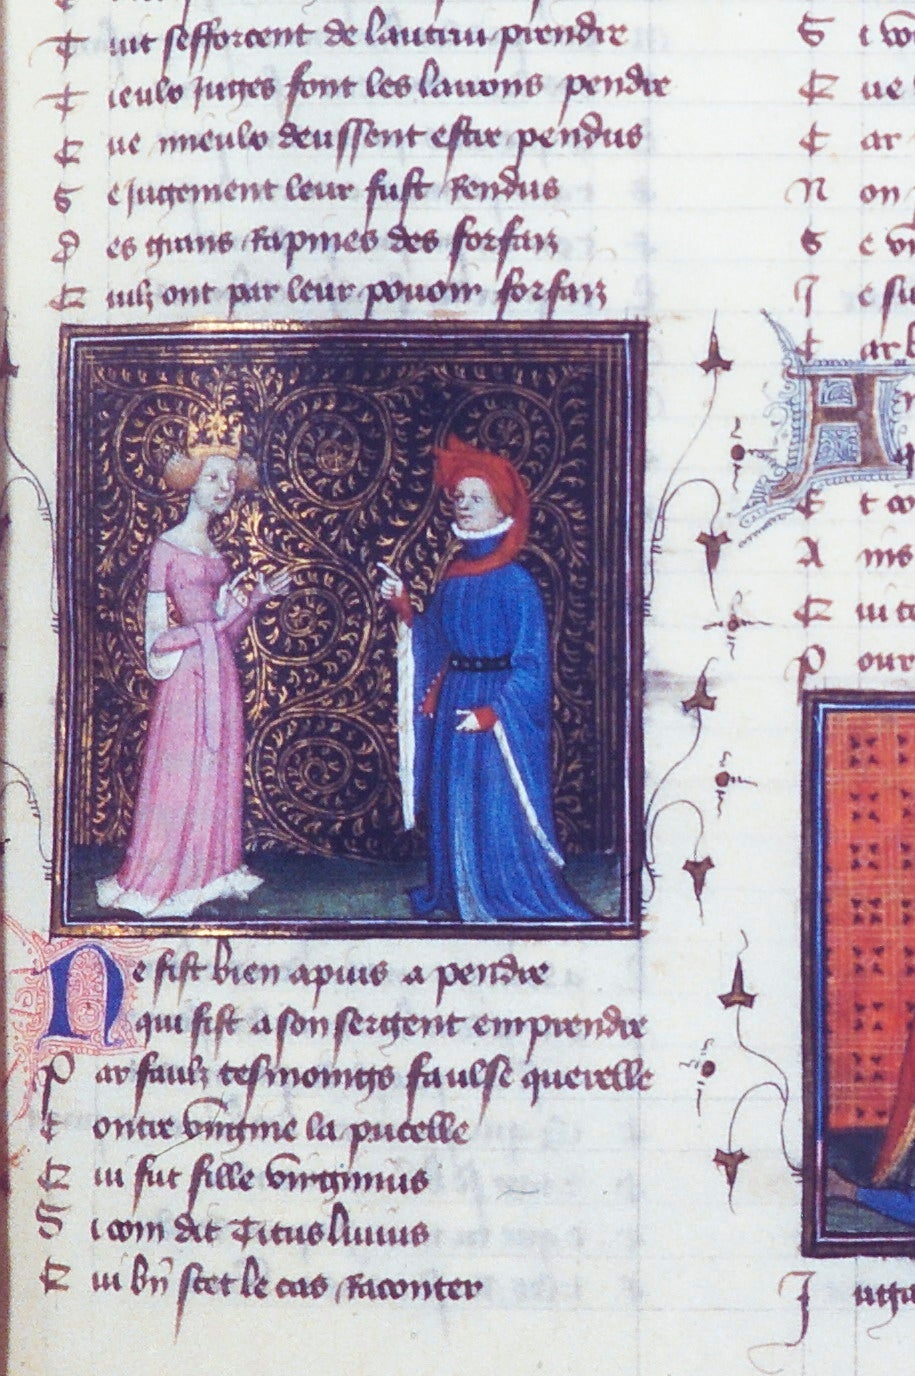 Tuit sefforcent de lautrui prendre
Tieulx juges font les larrons pendre
Que mieulx deussent estre pendus
Se jugement leur fust Rendus
Des grans Rapines des forfaiz
Quilz ont par leur pouoir forfaiz
Ne fist bien apius a pendre
qui fist a son sergent emprendre
Par faulz tesmoings faulse querelle
Contre virgine la pucelle
Qui fut fille virginius
Si com dit Titus liuius
Qui bn scet le cas Raconter
S i
Que
Car
Non
Se
Je
Car
A
Et
Ains
Qui
Pour
J